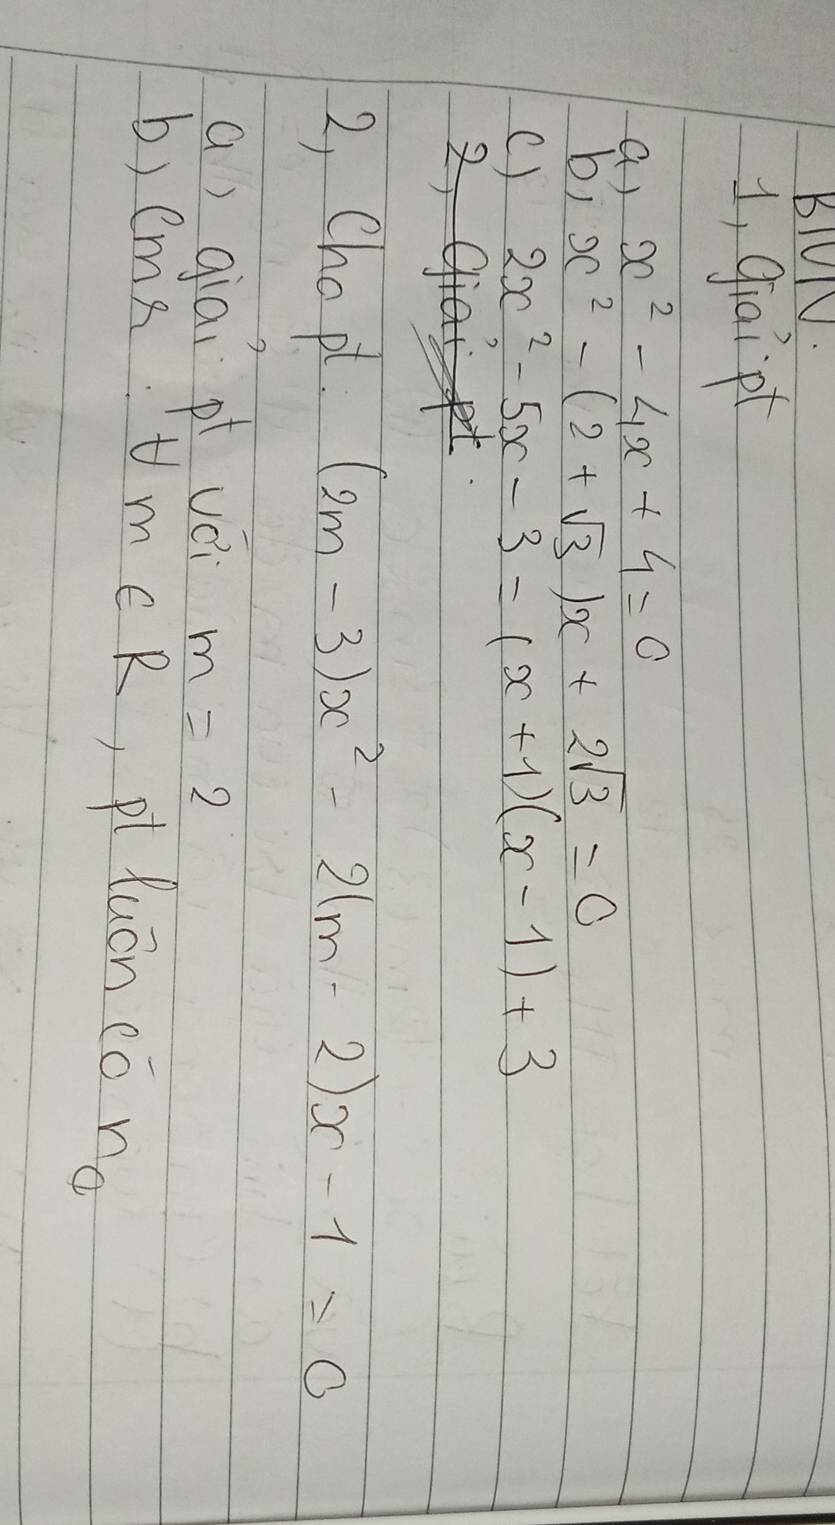 BTVN.
1, giải pt
a, x² - 4x + 4 = 0
b, x² - (2 + √3)x + 2√3 = 0
c) 2x² - 5x - 3 = (x + 1)(x - 1) + 3
2, Giải pt.
2, Cho pt. (2m - 3)x² - 2(m - 2)x - 1 = 0
a, giải pt với m = 2
b, Cmr. ∀ m ∈ R, pt luôn có n₀